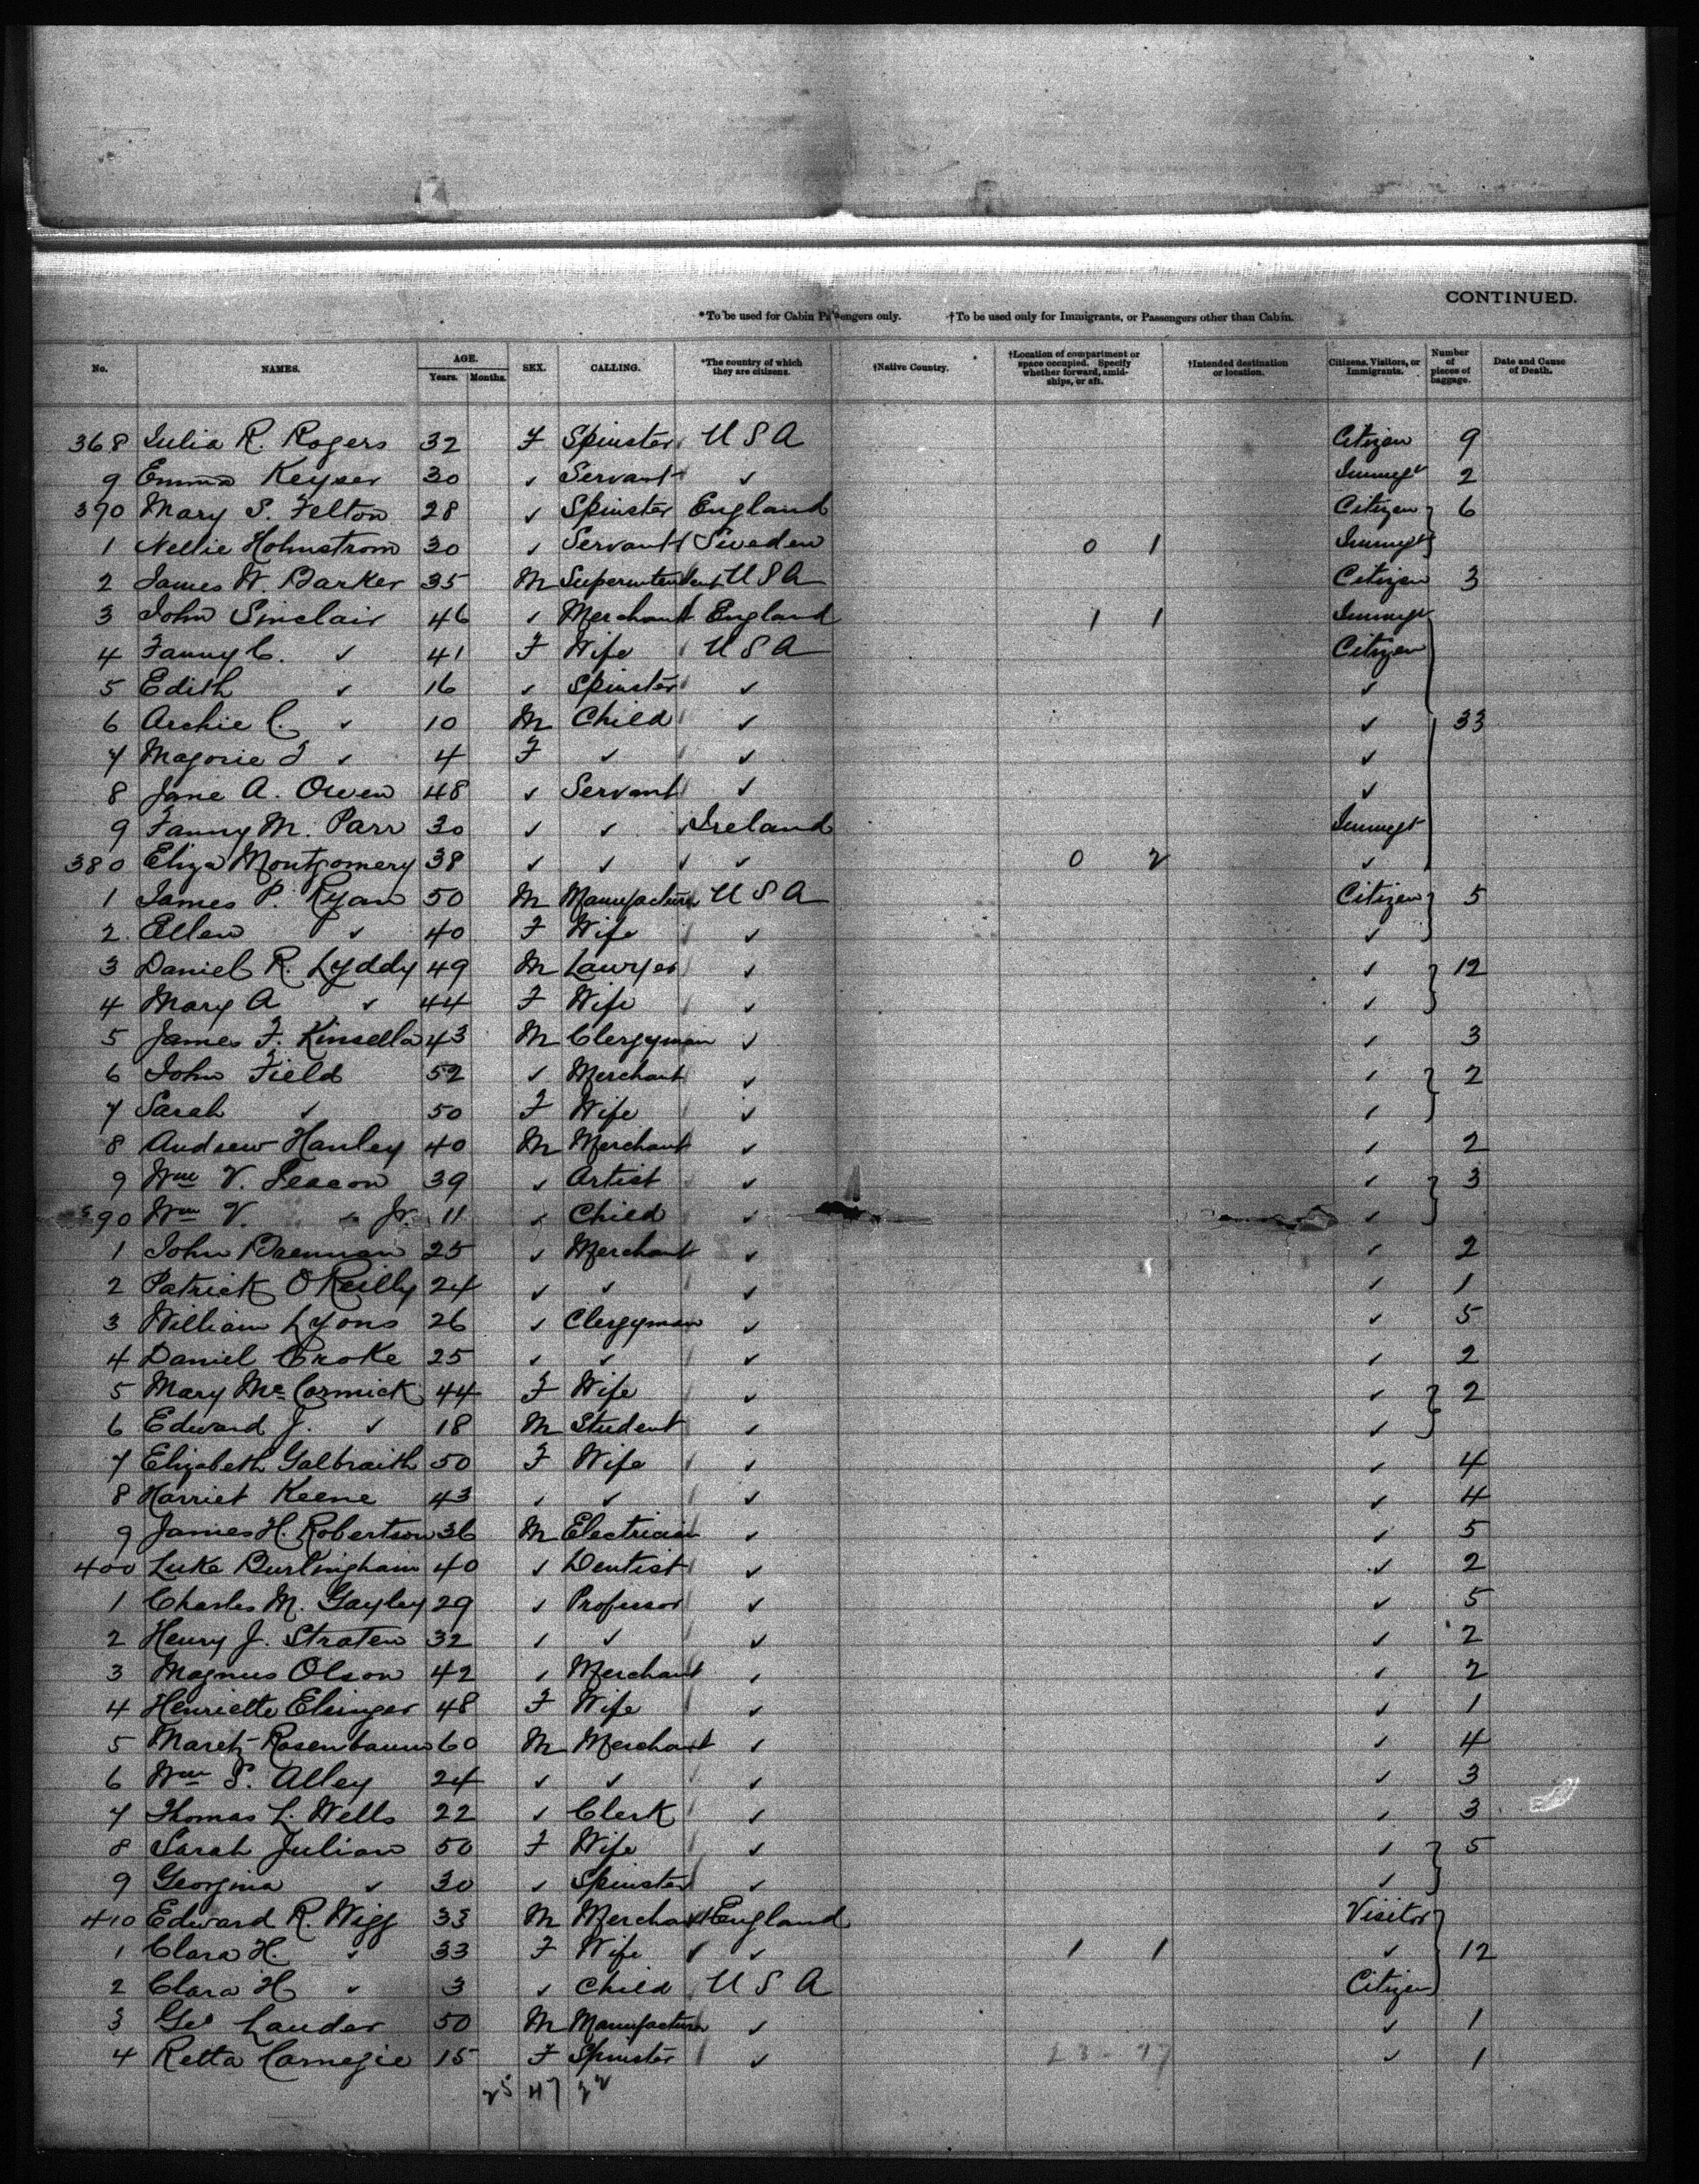 CONTINUED.
*To be used for Cabin Passengers only. †To be used only for Immigrants, or Passengers other than Cabin.
No. NAMES. AGE. Years. Months. SEX. CALLING. *The country of which they are citizens. †Native Country. †Location of compartment or space occupied. Specify whether forward, amidships, or aft. †Intended destination or location. Citizens, Visitors, or Immigrants. Number of pieces of baggage. Date and Cause of Death.
368 Julia R. Rogers 32 F Spinster U S A Citizen 9
9 Emma Keyser 30 ✓ Servant ✓ Immgt 2
370 Mary S. Felton 28 ✓ Spinster England Citizen 6
1 Nellie Holmstrom 30 ✓ Servant Sweden 0 1 Immgt
2 James W. Barker 35 M Superintendent U S A Citizen 3
3 John Sinclair 46 ✓ Merchant England 1 1 Immgt
4 Fanny C. ✓ 41 F Wife U S A Citizen
5 Edith ✓ 16 ✓ Spinster ✓ ✓
6 Archie C. ✓ 10 M Child ✓ ✓ 33
7 Majorie ✓ 4 F ✓ ✓ ✓
8 Jane A. Owen 48 ✓ Servant ✓ ✓
9 Fanny M. Parr 30 ✓ ✓ Ireland Immgt
380 Eliza Montgomery 38 ✓ ✓ ✓ 0 2 ✓
1 James P. Ryan 50 M Manufacturer U S A Citizen 5
2 Ellen ✓ 40 F Wife ✓ ✓
3 Daniel R. Lyddy 49 M Lawyer ✓ ✓ 12
4 Mary A ✓ 44 F Wife ✓ ✓
5 James F. Kinsella 43 M Clergyman ✓ ✓ 3
6 John Field 52 ✓ Merchant ✓ ✓ 2
7 Sarah ✓ 50 F Wife ✓ ✓
8 Andrew Hanley 40 M Merchant ✓ ✓ 2
9 Wm V. 39 ✓ Artist ✓ ✓ 3
390 Wm V. ✓ Jr. 11 ✓ Child ✓ ✓
1 John Brennan 25 ✓ Merchant ✓ ✓ 2
2 Patrick O'Reilly 24 ✓ ✓ ✓ ✓ 1
3 William Lyons 26 ✓ Clergyman ✓ ✓ 5
4 Daniel Croke 25 ✓ ✓ ✓ ✓ 2
5 Mary McCormick 44 F Wife ✓ ✓ 2
6 Edward J. ✓ 18 M Student ✓ ✓
7 Elizabeth Galbraith 50 F Wife ✓ ✓ 4
8 Harriet Keene 43 ✓ ✓ ✓ ✓ 4
9 James H. Robertson 36 M Electrician ✓ ✓ 5
400 Luke Burlingham 40 ✓ Dentist ✓ ✓ 2
1 Charles M. Gayley 29 ✓ Professor ✓ ✓ 5
2 Henry J. Straten 32 ✓ ✓ ✓ ✓ 2
3 Magnus Olson 42 ✓ Merchant ✓ ✓ 2
4 Henriette Elsinger 48 F Wife ✓ ✓ 1
5 Rosenbaum 60 M Merchant ✓ ✓ 4
6 Wm S. Alley 24 ✓ ✓ ✓ ✓ 3
7 Thomas L. Wells 22 ✓ Clerk ✓ ✓ 3
8 Sarah Julian 50 F Wife ✓ ✓ 5
9 Georgina ✓ 30 ✓ Spinster ✓ ✓
410 Edward R. Wigg 33 M Merchant England Visitor
1 Clara H. ✓ 33 F Wife ✓ ✓ 1 1 ✓ 12
2 Clara H ✓ 3 ✓ Child U S A Citizen
3 Geo Lauder 50 M Manufacturer ✓ ✓ 1
4 Retta Carnegie 15 F Spinster ✓ ✓ 1
25 47 22